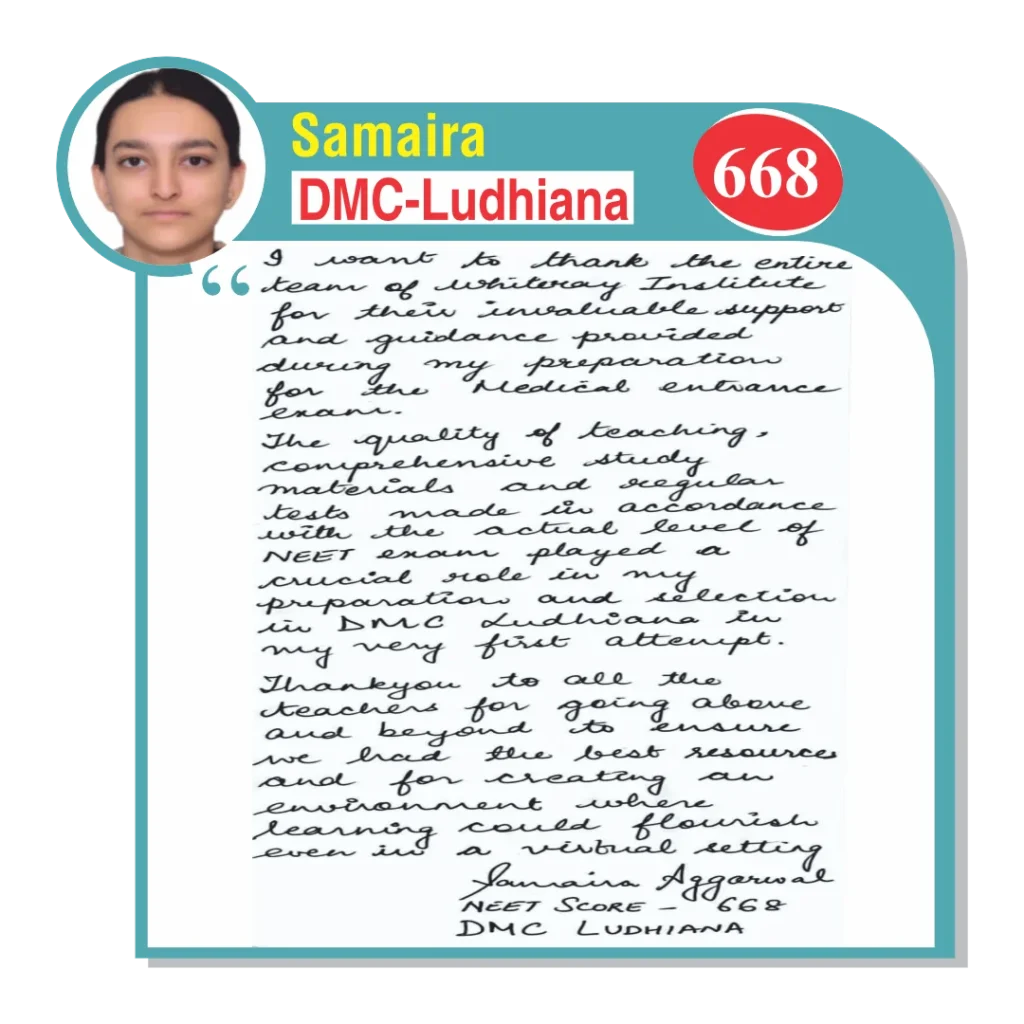 Samaira
DMC-Ludhiana
668
“
I want to thank the entire
team of Whiteray Institute
for their invaluable support
and guidance provided
during my preparation
for the Medical entrance
exam.
The quality of teaching,
comprehensive study
materials and regular
tests made in accordance
with the actual level of
NEET exam played a
crucial role in my
preparation and selection
in DMC Ludhiana in
my very first attempt.
Thankyou to all the
teachers for going above
and beyond to ensure
we had the best resources
and for creating an
environment where
learning could flourish
even in a virtual setting
Samaira Aggarwal
NEET SCORE – 668
DMC LUDHIANA